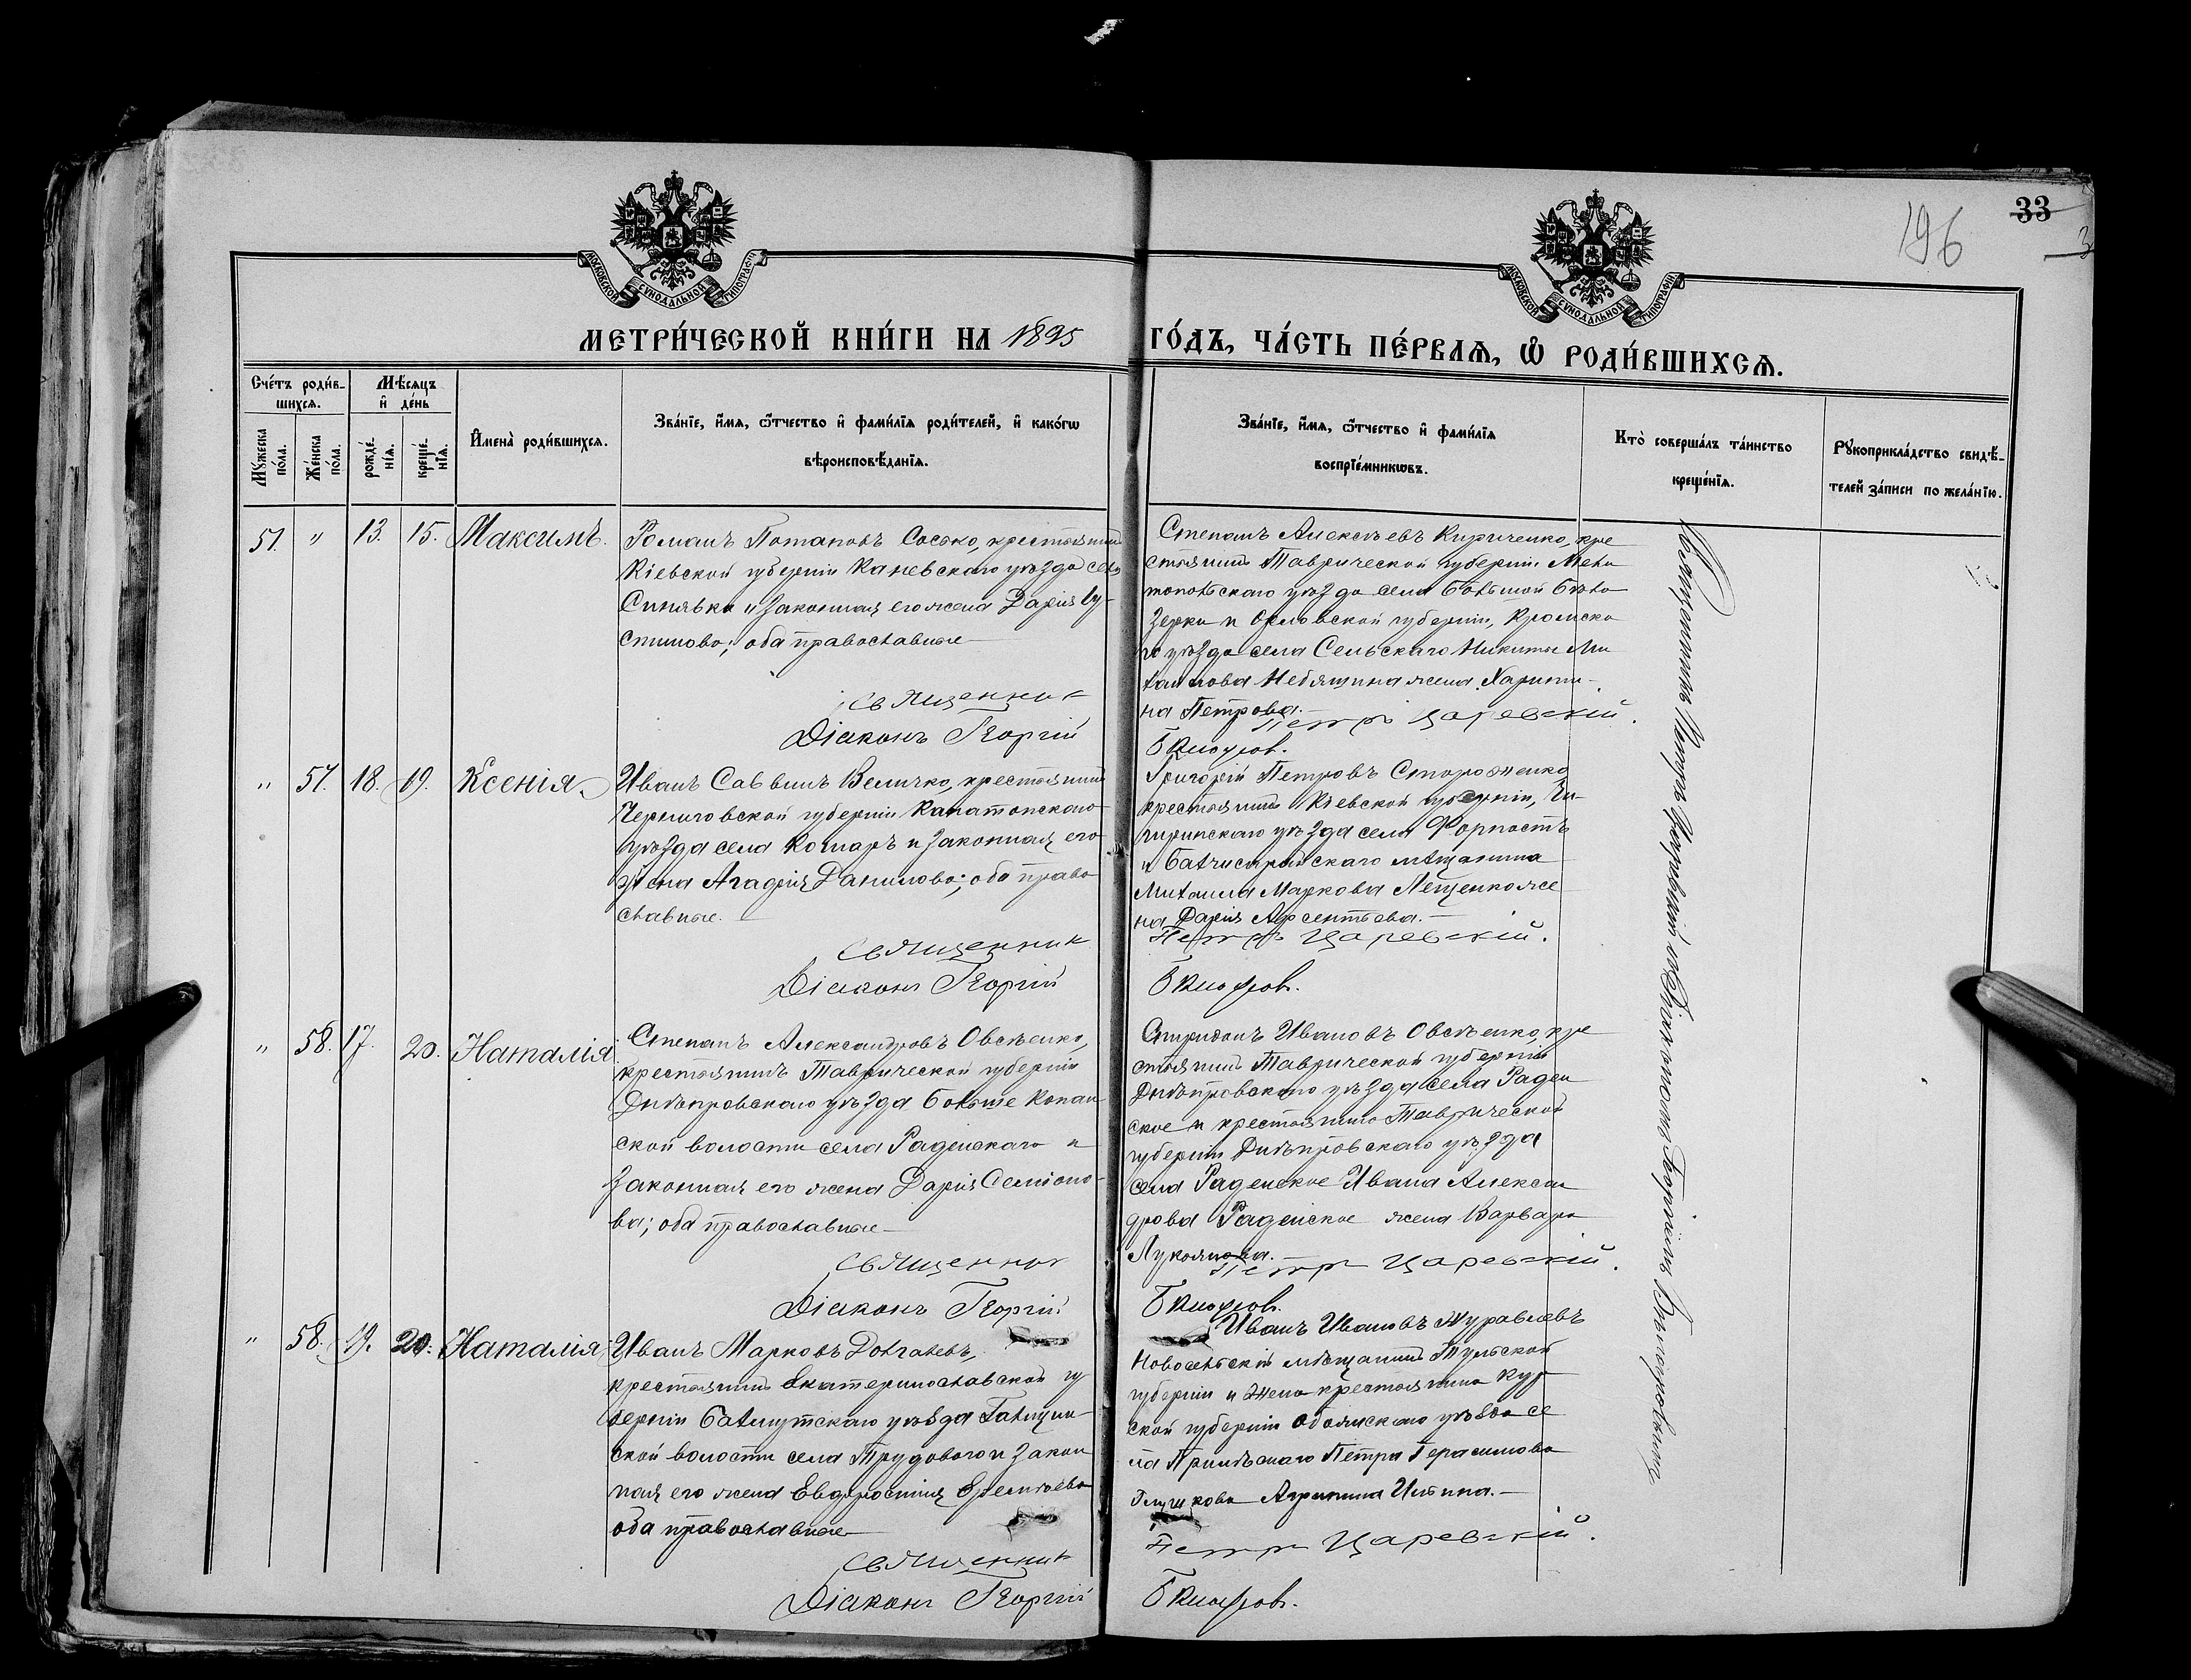 196
33
3
МОСКОВСКОЙ СѴНОДАЛЬНОЙ ТИПОГРАФІИ
МОСКОВСКОЙ СѴНОДАЛЬНОЙ ТИПОГРАФІИ
МЕТРИ́ЧЕСКОЙ КНИ́ГИ НА 1895 ГО́ДЪ, ЧА́СТЬ ПЕ́РВАѦ, Ѡ҆ РОДИ́ВШИХСѦ.
Сче́тъ роди́в-
шихсѧ.
Мѣ́сѧцъ
и҆ де́нь
Мꙋ́жеска
по́ла.
Же́нска
по́ла.
рожде́-
нїѧ.
креще́-
нїѧ.
И҆мена̀ роди́вшихсѧ.
Зва́нїе, и҆́мѧ, ѻ҆́тчество и҆ фами́лїѧ роди́телей, и҆ како́гѡ
вѣроисповѣ́данїѧ.
Зва́нїе, и҆́мѧ, ѻ҆́тчество и҆ фами́лїѧ
воспрїе́мникѡвъ.
Кто̀ соверша́лъ та́инство
креще́нїѧ.
Рꙋкоприкла́дство свидѣ́-
телей за́писи по жела́нїю.
51. " 13. 15. Максимъ.
Романъ Потаповъ Сосько, крестьянинъ
Кіевской губерніи Каневскаго уѣзда села
Синявки и законная его жена Дарія Іу-
стинова; оба православные
Священник
Діаконъ Георгій
Степанъ Алексѣевъ Кириченко, кре
стьянинъ Таврической губерніи Мели
топольскаго уѣзда села Большой Бѣло
зерки и Орловской губерніи, Кромска
го уѣзда села Сельскаго Никиты Ми
хаилова жена Харити-
на Петрова.
Петр Царевскій.
" 57. 18. 19. Ксенія.
Иванъ Саввинъ Величко, крестьянинъ
Черниговской губерніи Канатопскаго
уѣзда села Кошаръ и законная его
жена Агафія Данилова; оба право
славные.
Священник
Діаконъ Георгій
Григорій Петровъ Стороженко
крестьянинъ Кіевской губерніи, Чи-
гиринскаго уѣзда села Форпостъ
и Бахчисарайскаго мѣщанина
Михаила Маркова Лещенко же
на Дарія Арсентьева.
Петръ Царевскій.
" 58. 17. 20. Наталія
Степанъ Александровъ Овсѣенко,
крестьянинъ Таврической губерніи
Днѣпровскаго уѣзда Больше Копан
ской волости села Раденскаго и
законная его жена Дарія Семіоно-
ва; оба православные
Священник
Діаконъ Георгій
Спиридонъ Ивановъ Овсѣенко, кре
стьянинъ Таврической губерніи
Днѣпровскаго уѣзда села Раден
ское и крестьянина Таврической
губерніи Днѣпровскаго уѣзда
села Раденское Ивана Алексан
дрова Раденское жена Варвара
Лукоянова.
Петръ Царевскій.
" 58. 19. 20. Наталія
Иванъ Марковъ Долгалевъ,
крестьянинъ Екатеринославской гу
берніи Бахмутскаго уѣзда
ской волости села Трудового и закон
ная его жена Евфросинія Еремѣева
оба православные
Священник
Діаконъ Георгій
Иванъ Ивановъ Журавлевъ
Новосельскій мѣщанинъ Тульской
губерніи и жена крестьянина Кур
ской губерніи Обоянскаго уѣзда се
ла Петра Герасимова
Глушкова Агрипина Ильина.
Петръ Царевскій.
Священникъ Петръ Царевскій и Діакономъ Георгіемъ